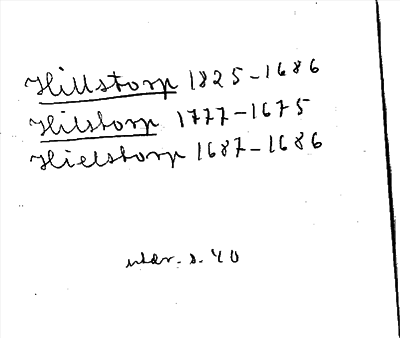 Hillstorp 1825-1686
Hilstorp 1777-1675
Hielstorp 1687-1686
utdr. s. 40